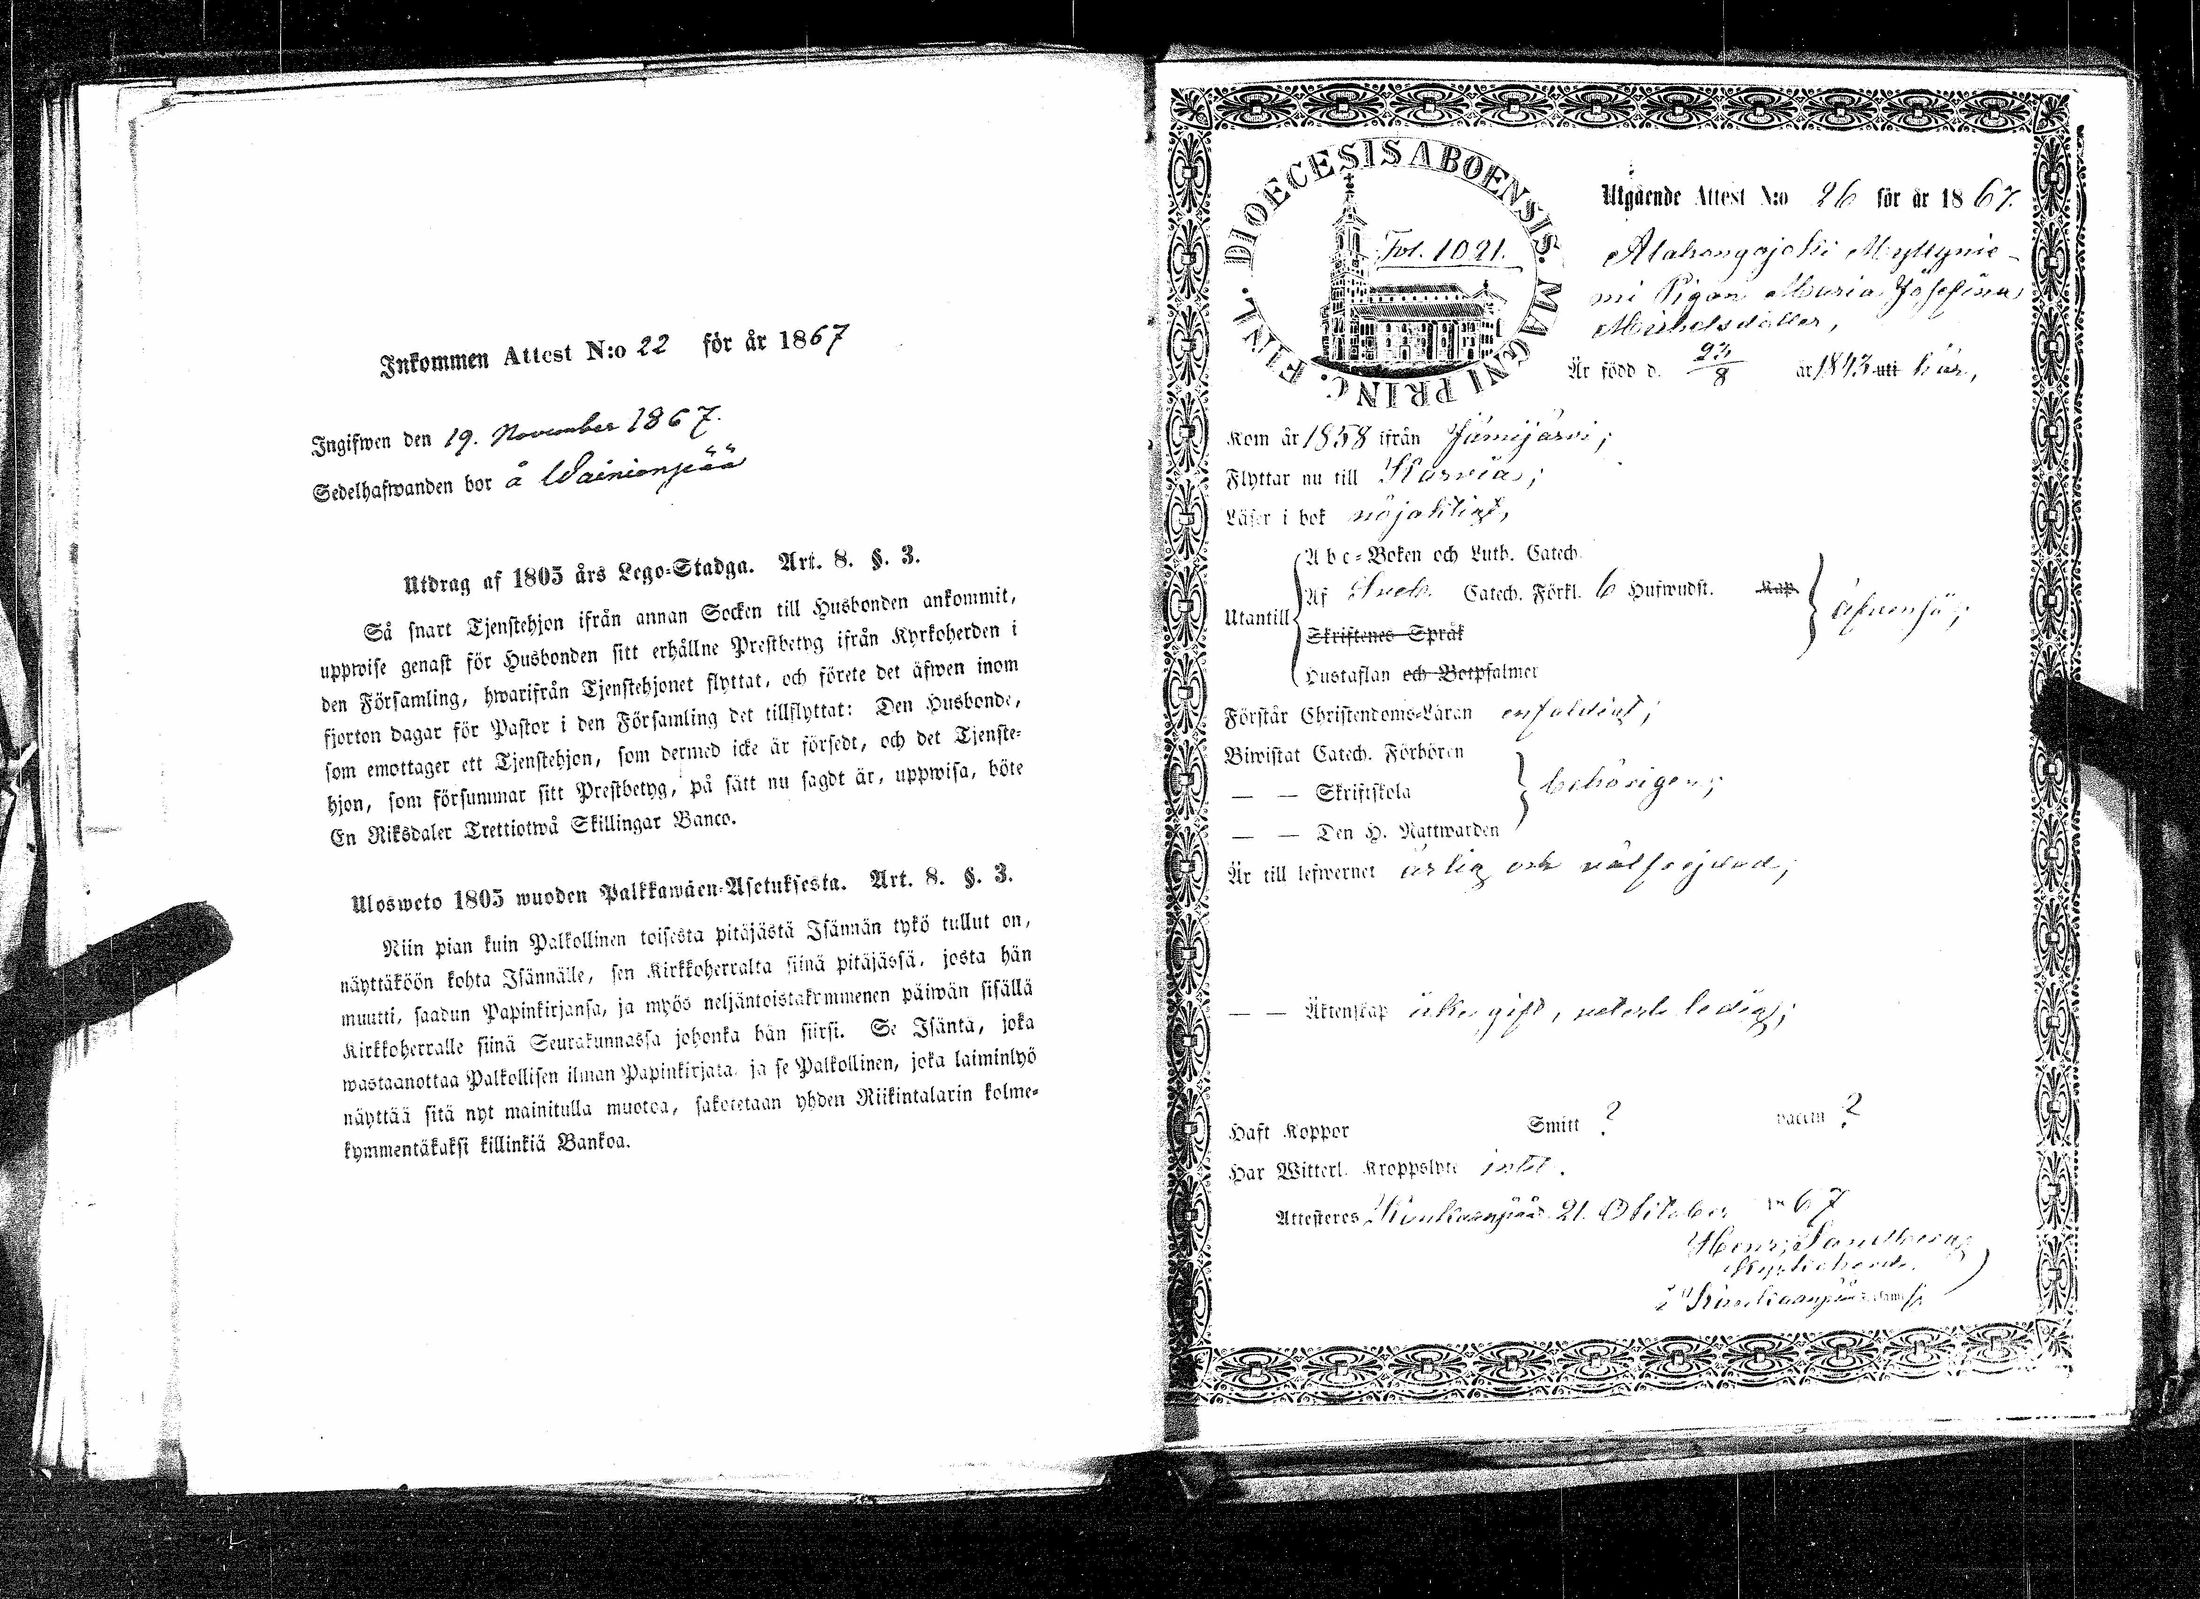 Inkommen Attest N:o 22 för år 1867
Ingifwen den 19. November 1867.
Sedelhafwanden bor å Wainionpää
Utdrag af 1805 års Lego-Stadga. Art. 8. §. 3.
Så snart Tjenstehjon ifrån annan Socken till Husbonden ankommit,
uppwise genast för Husbonden sitt erhållne Prestbetyg ifrån Kyrkoherden i
den Församling, hwarifrån Tjenstehjonet flyttat, och förete det äfwen inom
fjorton dagar för Pastor i den Församling det tillflyttat: Den Husbonde,
som emottager ett Tjenstehjon, som dermed icke är försedt, och det Tjenste-
hjon, som försummar sitt Prestbetyg, på sätt nu sagdt är, uppwisa, böte
En Riksdaler Trettiotwå Skillingar Banco.
Ulosweto 1805 wuoden Palkkawäen-Asetuksesta. Art. 8. §. 3.
Niin pian kuin Palkollinen toisesta pitäjästä Isännän tykö tullut on,
näyttäköön kohta Isännälle, sen Kirkkoherralta siinä pitäjässä, josta hän
muutti, saadun Papinkirjansa, ja myös neljäntoistakymmenen päiwän sisällä
Kirkkoherralle siinä Seurakunnassa johonka hän siirsi. Se Isäntä, joka
wastaanottaa Palkollisen ilman Papinkirjata, ja se Palkollinen, joka laiminlyö
näyttää sitä nyt mainitulla muotoa, sakotetaan yhden Riikintalarin kolme-
kymmentäkaksi killinkiä Bankoa.
DIOECESIS ABOENSIS. MAGNI PRINC. FINL.
Fol. 1021.
Utgående Attest N:o 26 för år 1867.
Alahongajoki Myllynie-
mi Pigan Maria Josefina
Michelsdotter,
Är född d. 23/8 år 1843 uti här,
Kom år 1858 ifrån Jämijärvi;
Flyttar nu till Karvia;
Läser i bok nöjaktigt,
Utantill
Abc-Boken och Luth. Catech.
Af Sveb. Catech. Förkl. 6 Hufwudst. Kap.
Skriftenes Språk
Hustaflan och Botpsalmer
Förstår Christendoms-Läran enfaldigt;
Biwistat Catech. Förhören
— — Skriftskola
behörigen;
— — Den H. Nattwarden
Är till lefwernet ärlig och välfrejdad;
— — Äktenskap icke gift, veterl. ledig;
Haft Koppor Smitt ? vaccin ?
Har Witterl. Kroppslyte intet.
Attesteres Kankaanpää 21. Oktober 1867
Henr. Sandberg
Kyrkoherde
i Kankaanpää